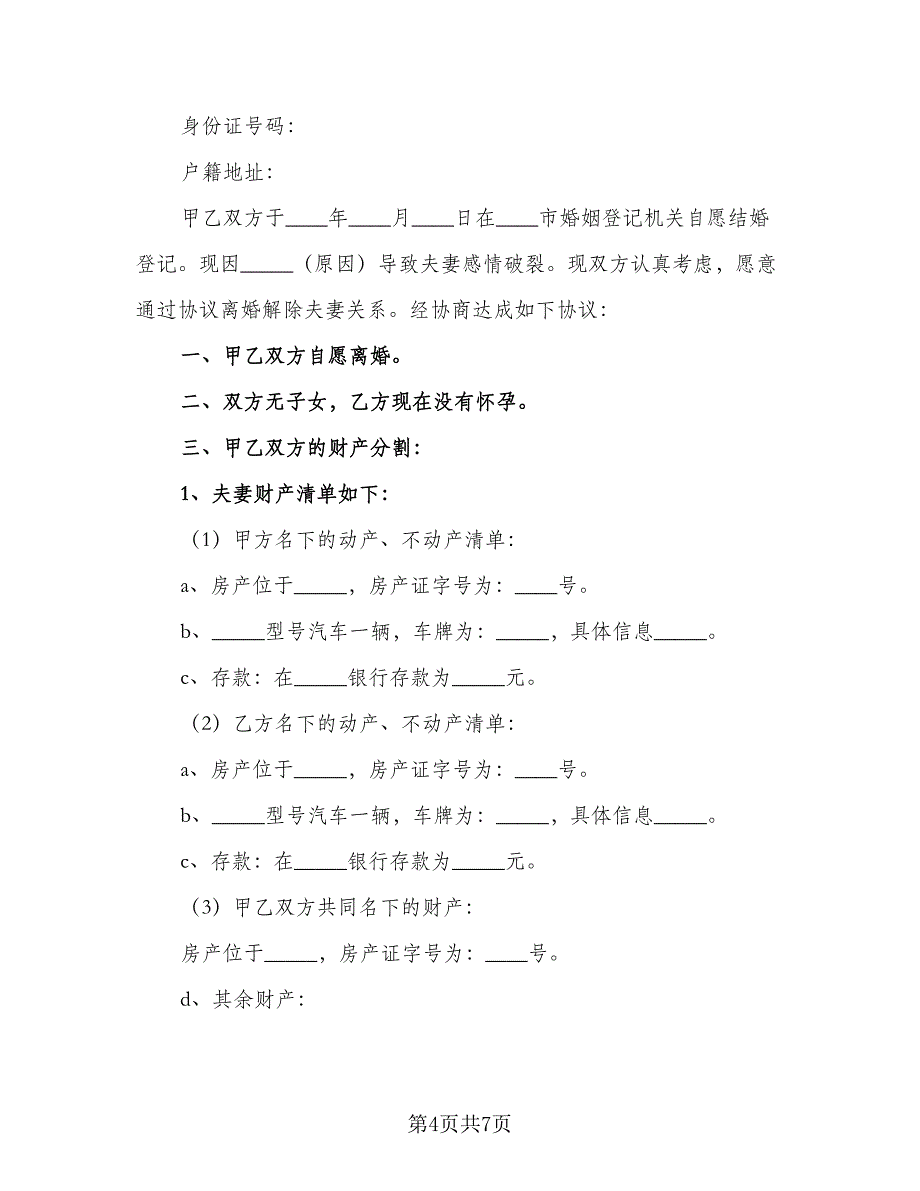 身份证号码：
户籍地址：
甲乙双方于____年____月____日在____市婚姻登记机关自愿结婚
登记。现因_____（原因）导致夫妻感情破裂。现双方认真考虑，愿意
通过协议离婚解除夫妻关系。经协商达成如下协议：
一、甲乙双方自愿离婚。
二、双方无子女，乙方现在没有怀孕。
三、甲乙双方的财产分割：
1、夫妻财产清单如下：
（1）甲方名下的动产、不动产清单：
a、房产位于_____，房产证字号为：____号。
b、_____型号汽车一辆，车牌为：_____，具体信息_____。
c、存款：在_____银行存款为_____元。
（2）乙方名下的动产、不动产清单：
a、房产位于_____，房产证字号为：____号。
b、_____型号汽车一辆，车牌为：_____，具体信息_____。
c、存款：在_____银行存款为_____元。
（3）甲乙双方共同名下的财产：
房产位于_____，房产证字号为：____号。
d、其余财产：
第4页共7页